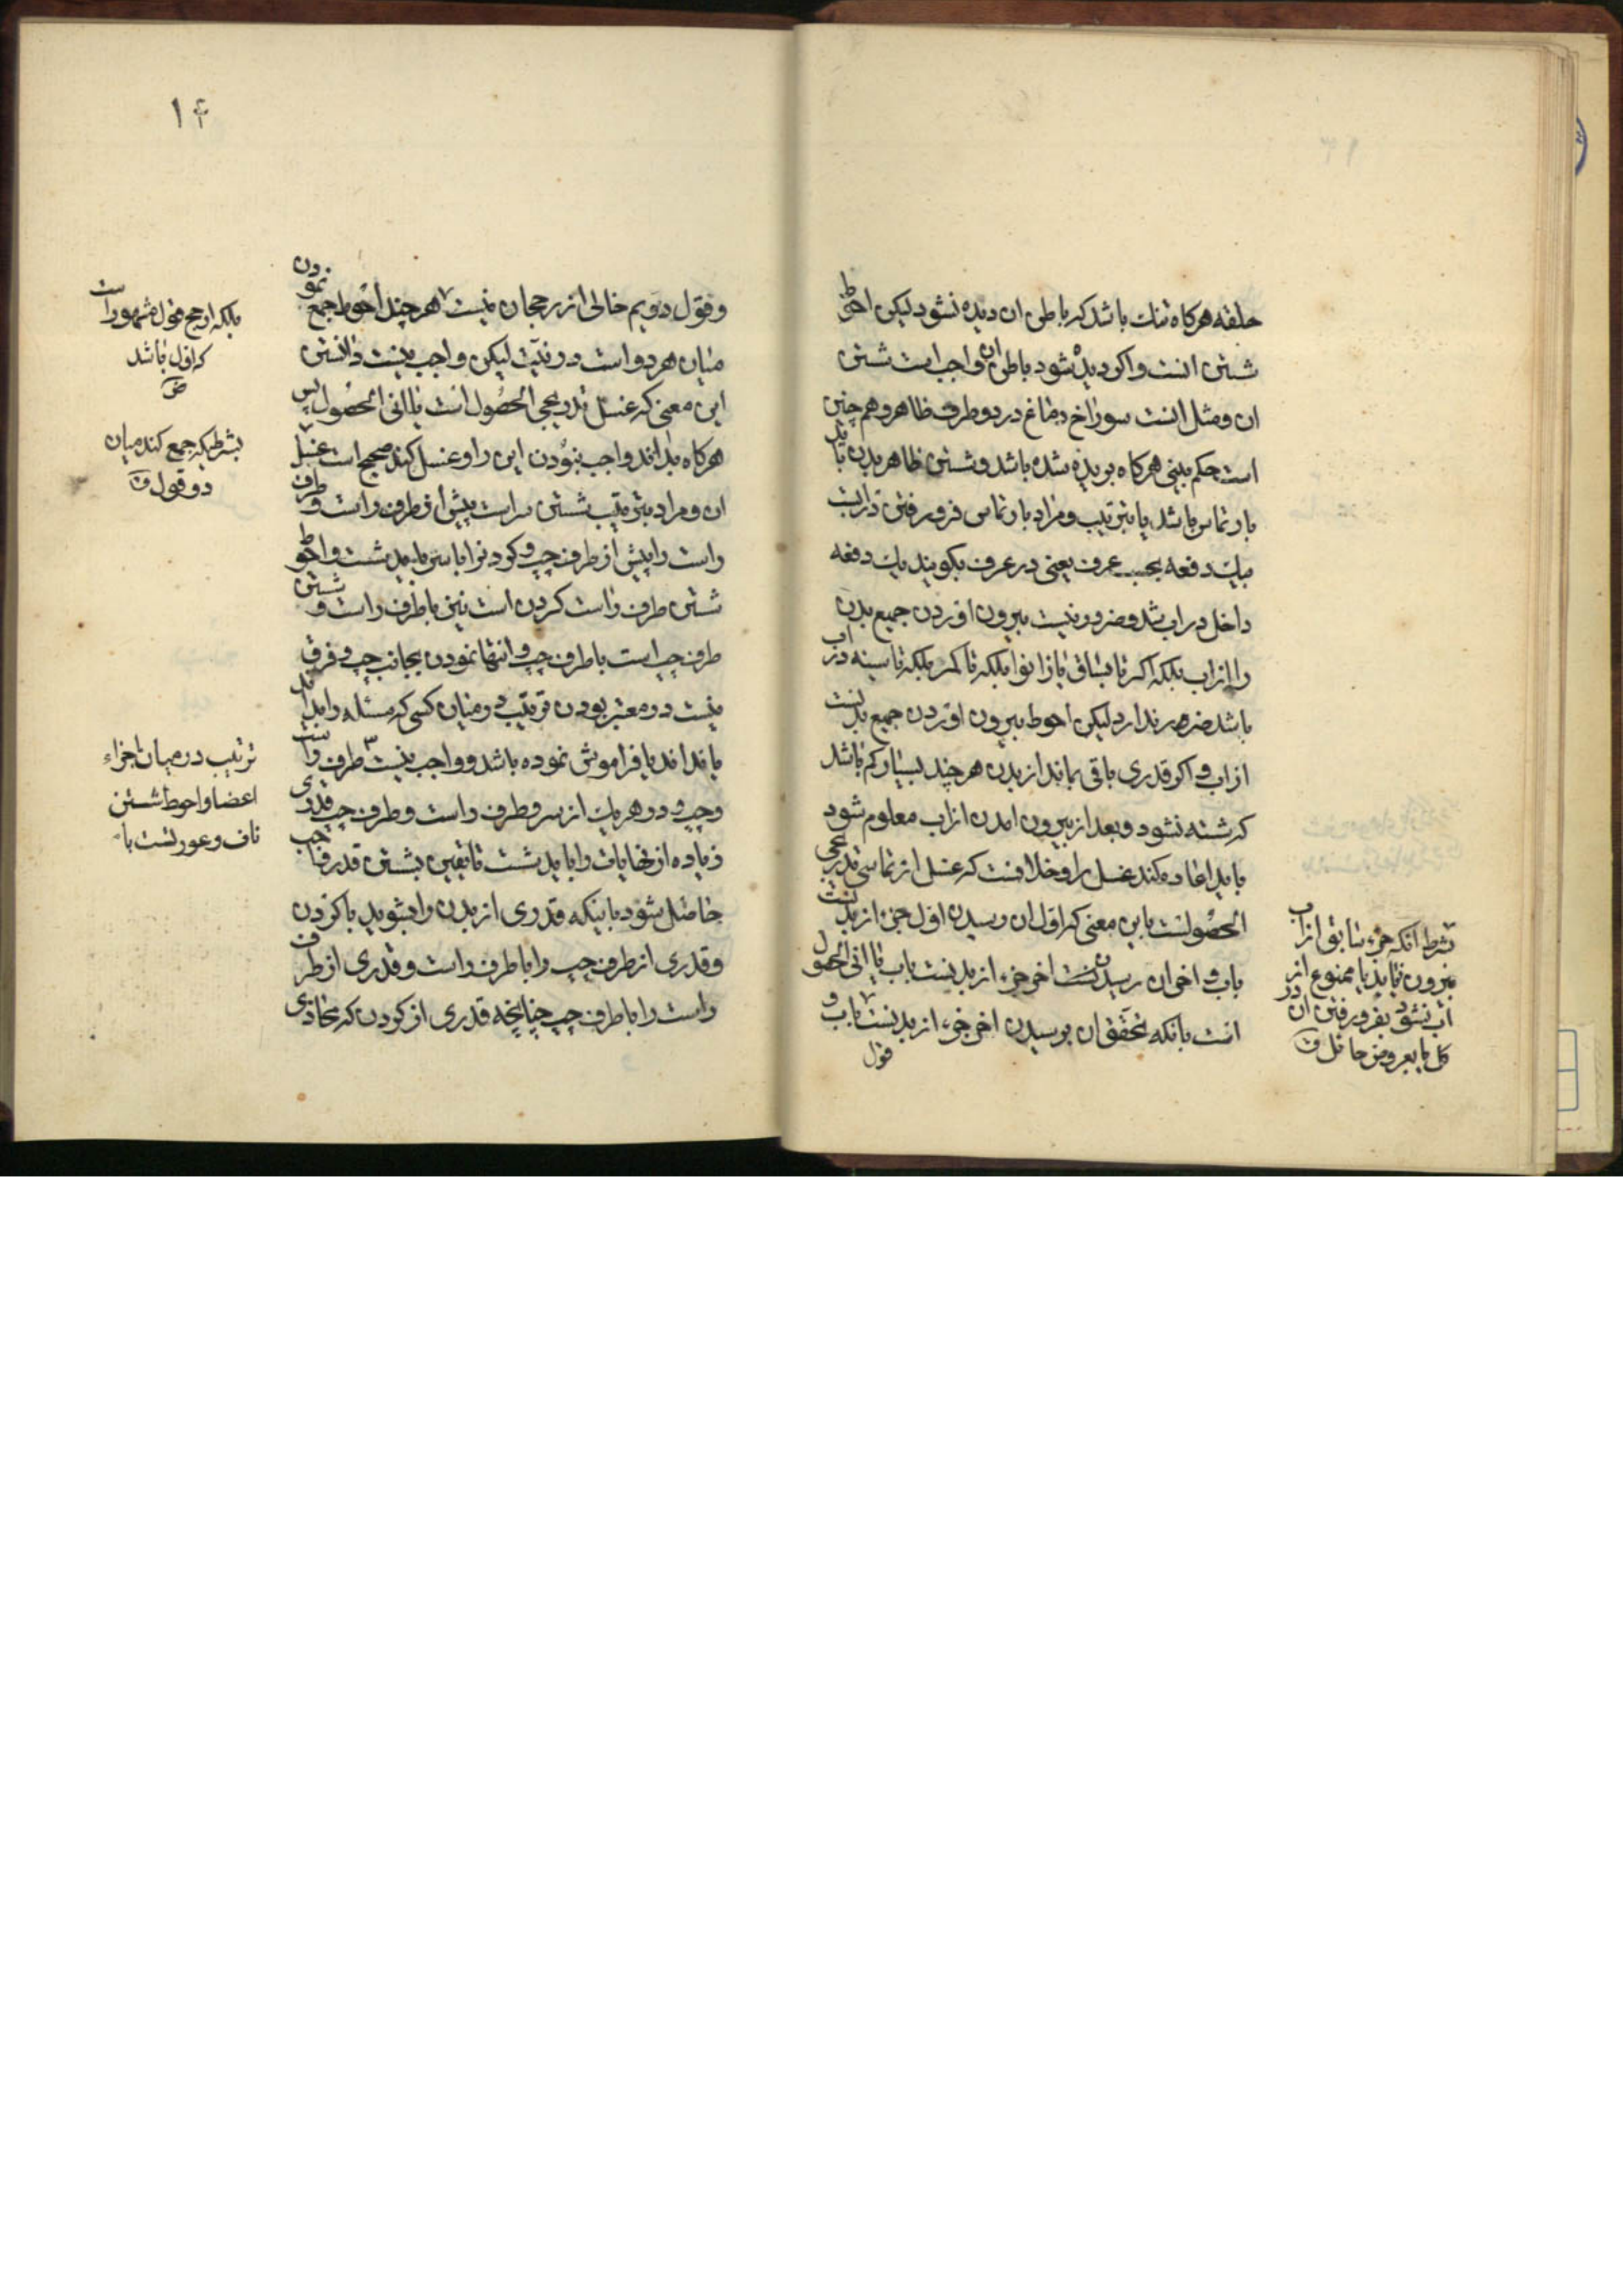 حلقه هرکاه تنك باشد که باطن ان دیده نشود لیکن احوط
شستن انست واکر دیده شود باطن ان واجب است شستن
ان ومثل انست سوراخ دماغ در دو طرف ظاهر وهم چنین
است حکم بینی هرکاه بریده شده باشد وشستن ظاهر بدن باید
بارتماس باشد یا بترتیب ومراد بارتماس فرورفتن در ابست
بیك دفعه بحسب عرف یعنی در عرف بکویند یك دفعه
داخل در اب شد وضرور نیست بیرون اوردن جمیع بدن
را از اب بلکه اکر تا بساق یا زانو بلکه تا کمر بلکه تا سینه در اب
باشد ضرر ندارد لیکن احوط بیرون اوردن جمیع بدنست
از اب و اکر قدری باقی بماند از بدن هرچند بسیار کم باشد
که شسته نشود وبعد از بیرون امدن از اب معلوم شود
باید اعاده کند غسل را وخلافست که غسل ارتماسی تدریجی
الحصولست باین معنی که اول ان رسیدن اول جزء از بدنست
باب و اخر ان رسیدن اخر جزء از بدنست باب یا انی الحصول
است بانکه تحقق ان برسیدن اخر جزء از بدنست باب و
قول
بشرط انکه جزء سابق از اب
بیرون نیاید یا ممنوع از
اب نشود بفرورفتن ان در
کل یا بعروض حائل ق
۱۴
وقول دویم خالی از رجحان نیست هرچند احوط جمع نمودن
میان هر دو است در نیت لیکن واجب نیست دانستن
این معنی که غسل تدریجی الحصول است یا انی الحصول پس
هرکاه بداند واجب نبودن این را وغسل کند صحیح است غسل
ان ومراد بترتیب شستن سر است پیش از طرف راست وطرف
راست را پیش از طرف چپ وکردن را با سر باید شست واحوط
شستن طرف راست کردن است نیز با طرف راست و شستن
طرف چپ است با طرف چپ وانتها نمودن بجانب چپ وفرق
نیست در معتبر بودن ترتیب در میان کسی که مسئله را بداند
یا نداند یا فراموش نموده باشد وواجب نیست طرف راست
وچپ ودر هریك از سر وطرف راست وطرف چپ قدری
زیاده از نهایات را باید شست تا یقین بشستن قدر واجب
حاصل شود باینکه قدری از بدن را بشوید با کردن
وقدری از طرف چپ را با طرف راست وقدری از طرف
راست را با طرف چپ چنانچه قدری از کردن که محاذی
بلکه ارجح قول مشهور است
که اول باشد
بشرطیکه جمع کند میان
دو قول ق
ترتیب در میان اجزاء
اعضا واحوط شستن
ناف وعورتست با